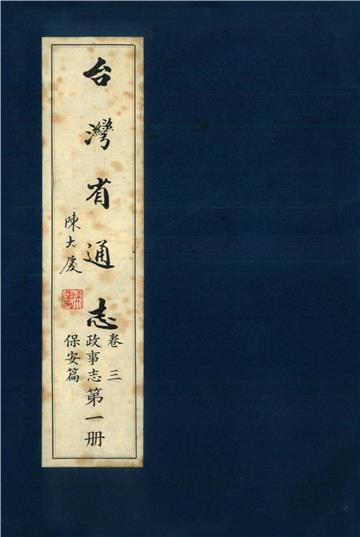 台灣省通志
陳大慶
卷三
政事志
保安篇
第一册